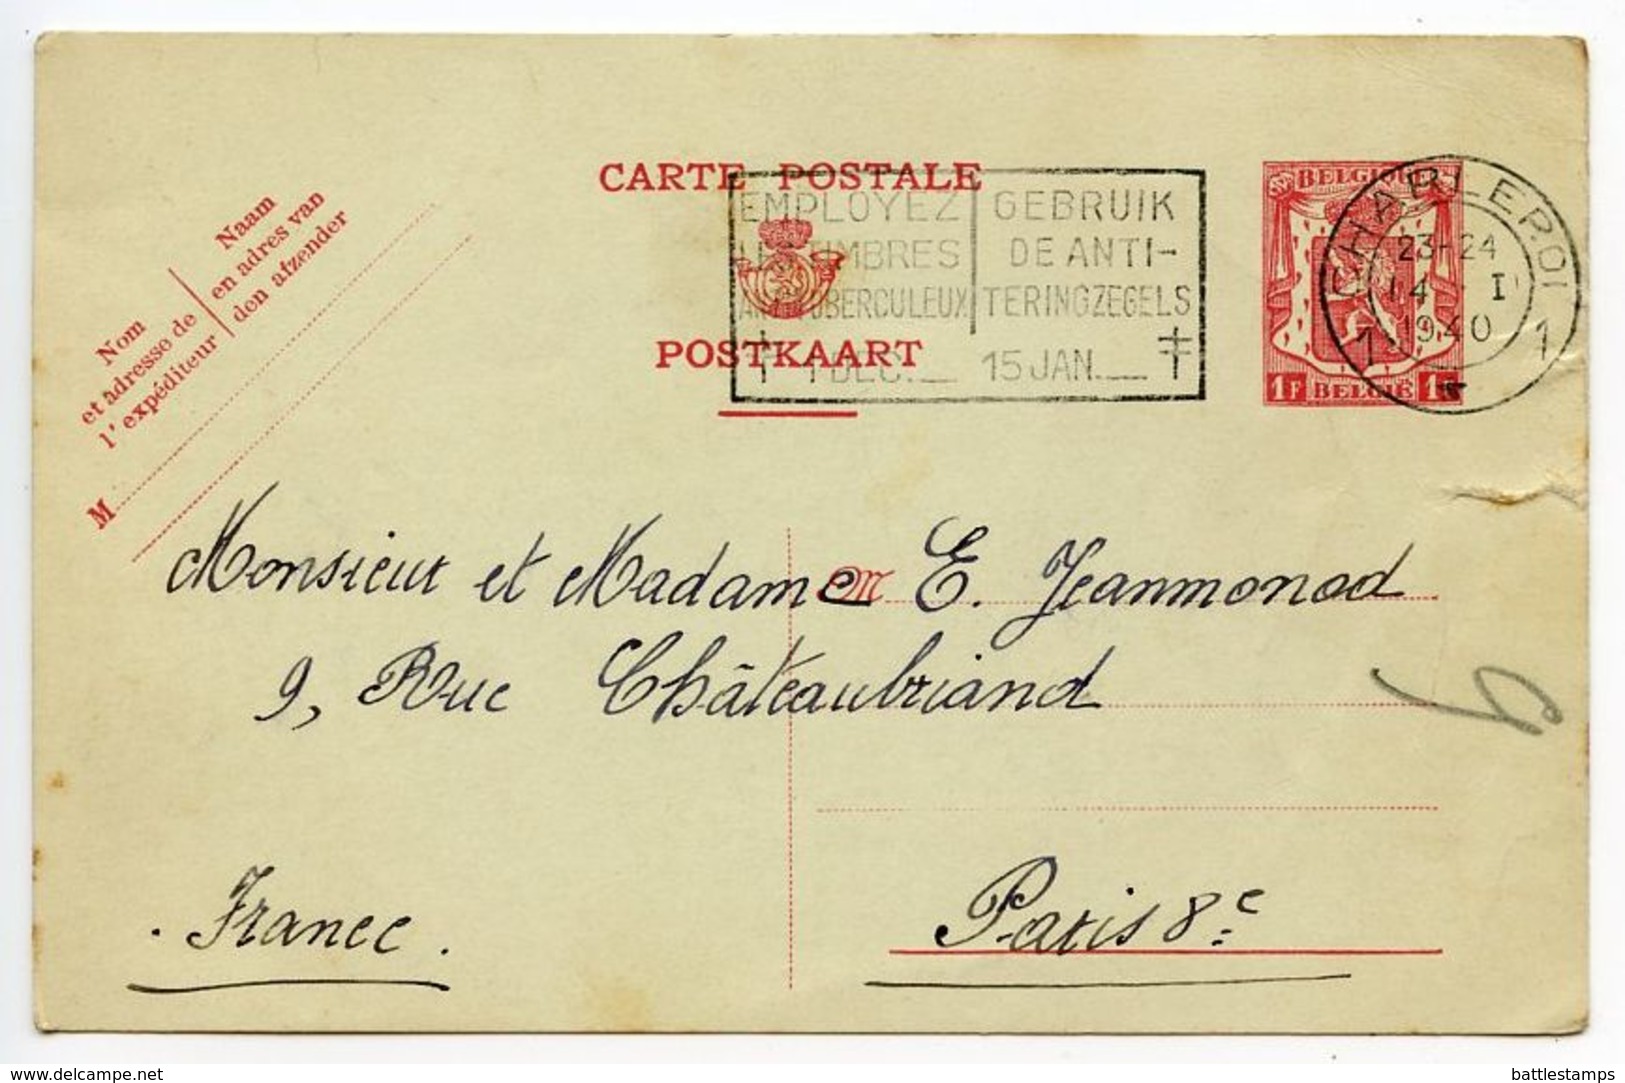 CARTE POSTALE
POSTKAART
Nom
et adresse de
l'expéditeur
Naam
en adres van
den afzender
M
EMPLOYEZ
LES TIMBRES
ANTITUBERCULEUX
1 DEC. — 15 JAN. —
GEBRUIK
DE ANTI-
TERINGZEGELS
BELGIQUE
1F BELGIË 1F
CHARLEROI
23-24
14 I
1940
1 1
Monsieur et Madame E. Jeanmonod
9, Rue Châteaubriand
Paris 8e
. France .
www.delcampe.net
battlestamps